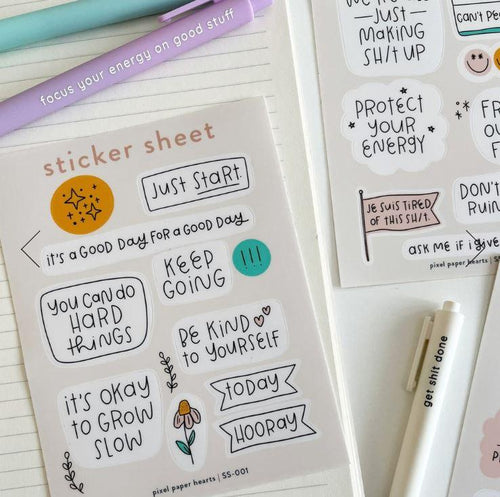 focus your energy on good stuff SS-003
sticker sheet
JUST START.
it's a GOOD DAY FOR a GOOD DAY
KEEP
GOING
!!!
you can do
HARD
things
BE KIND
to YOURSELF
it's OKAY
to GROW
SLOW
today
HOORAY
pixel paper hearts | SS-001
JUST
MAKING
SH/T UP
CAN'T
PROTECT
YOUR
ENERGY
JE SUIS TIRED
OF THIS SH/T.
DON'T
RUIN
ask ME if i GIVE
pixel paper hearts |
get shit done